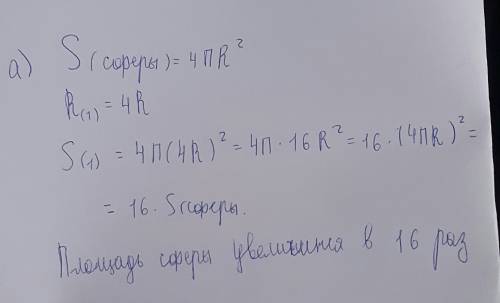 а) S(сферы) = 4ПR²
R(1) = 4R
S(1) = 4П(4R)² = 4П · 16R² = 16 · (4ПR)² =
= 16 · Sсферы.
Площадь сферы увеличится в 16 раз